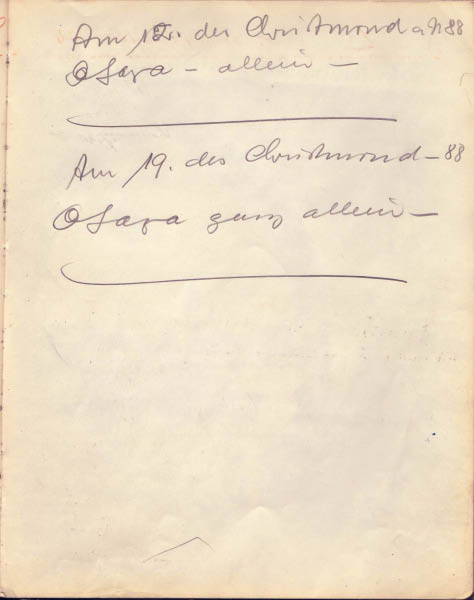 Am 12. des Christmond a 1188
OSaga - allein -
Am 19. des Christmond - 88
OSaga ganz allein -